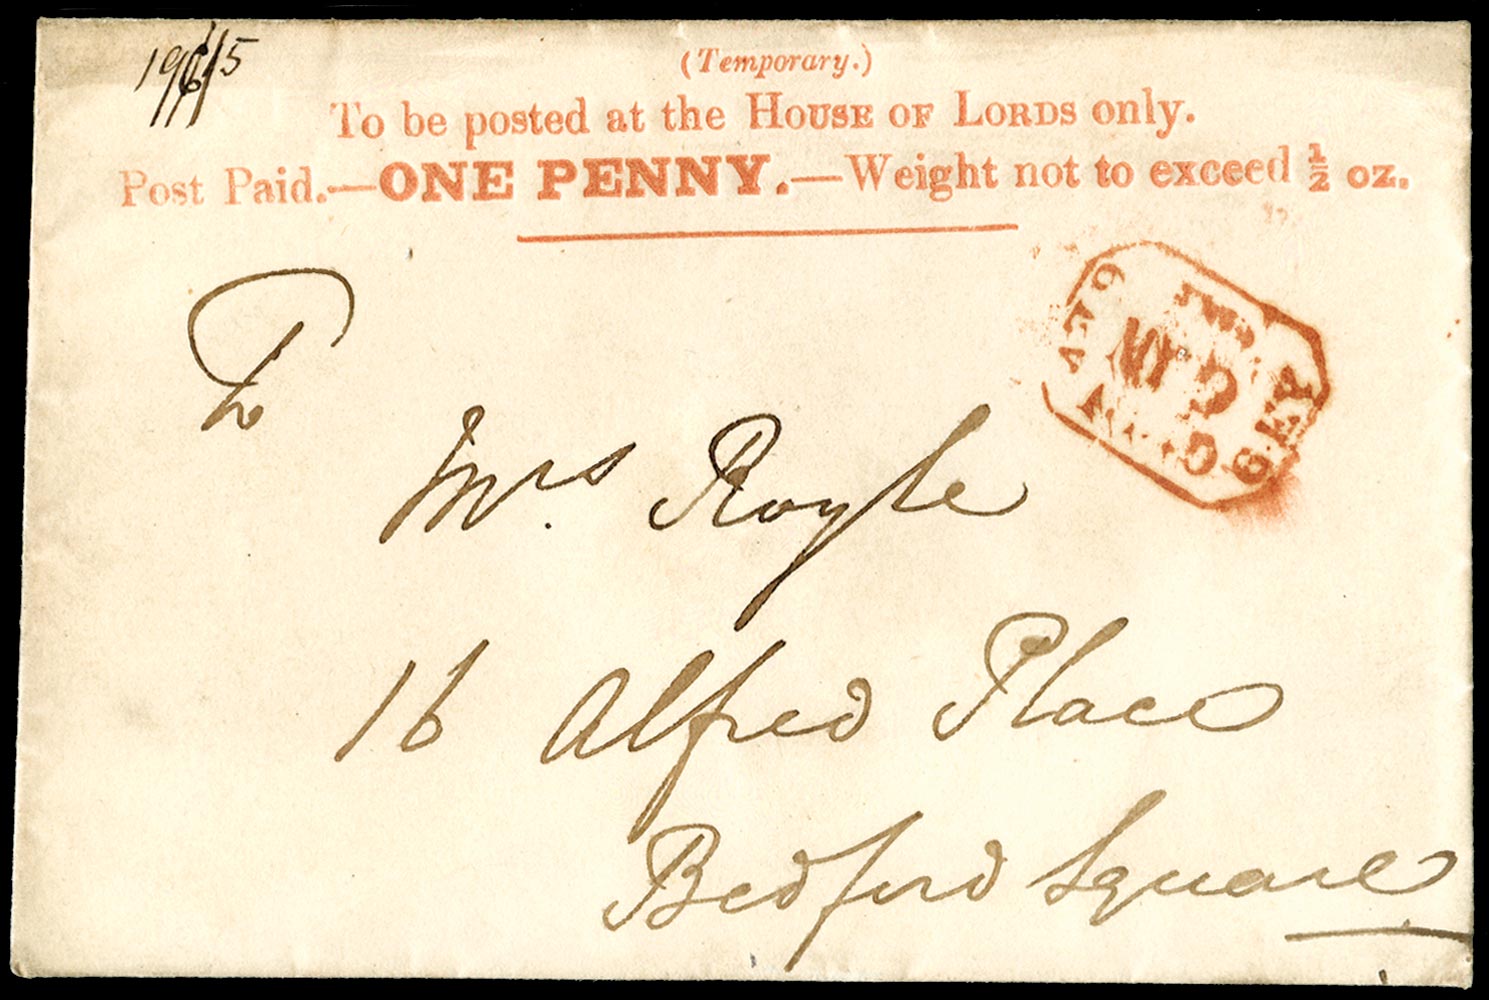 19/6/5
(Temporary.)
To be posted at the House of Lords only.
Post Paid.—ONE PENNY.—Weight not to exceed ½ oz.
To
Mrs. Royle
16 Alfred Place
Bedford Square